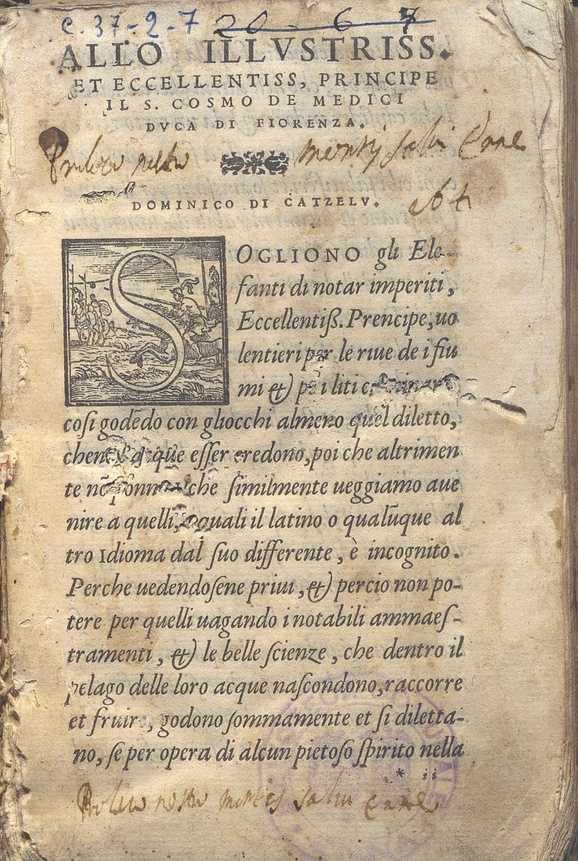 C. 37-2-7 20 6 7
ALLO ILLVSTRISS.
ET ECCELLENTISS, PRINCIPE
IL S. COSMO DE MEDICI
DVCA DI FIORENZA.
DOMINICO DI CATZELV.
SOGLIONO gli Ele-
fanti di notar imperiti,
Eccellentiß. Prencipe, uo
lentieri per le riue de i fiu
mi & liti
cosi godēdo con gliocchi almeno quel diletto,
que esser credono, poi che altrimen
te che similmente ueggiamo aue
nire a quelli, quali il latino o qualūque al
tro Idioma dal suo differente, è incognito.
Perche uedendosene priui, & percio non po-
tere per quelli uagando i notabili ammaes-
tramenti, & le belle scienze, che dentro il
pelago delle loro acque nascondono, raccorre
et fruire, godono sommamente et si diletta-
no, se per opera di alcun pietoso spirito nella